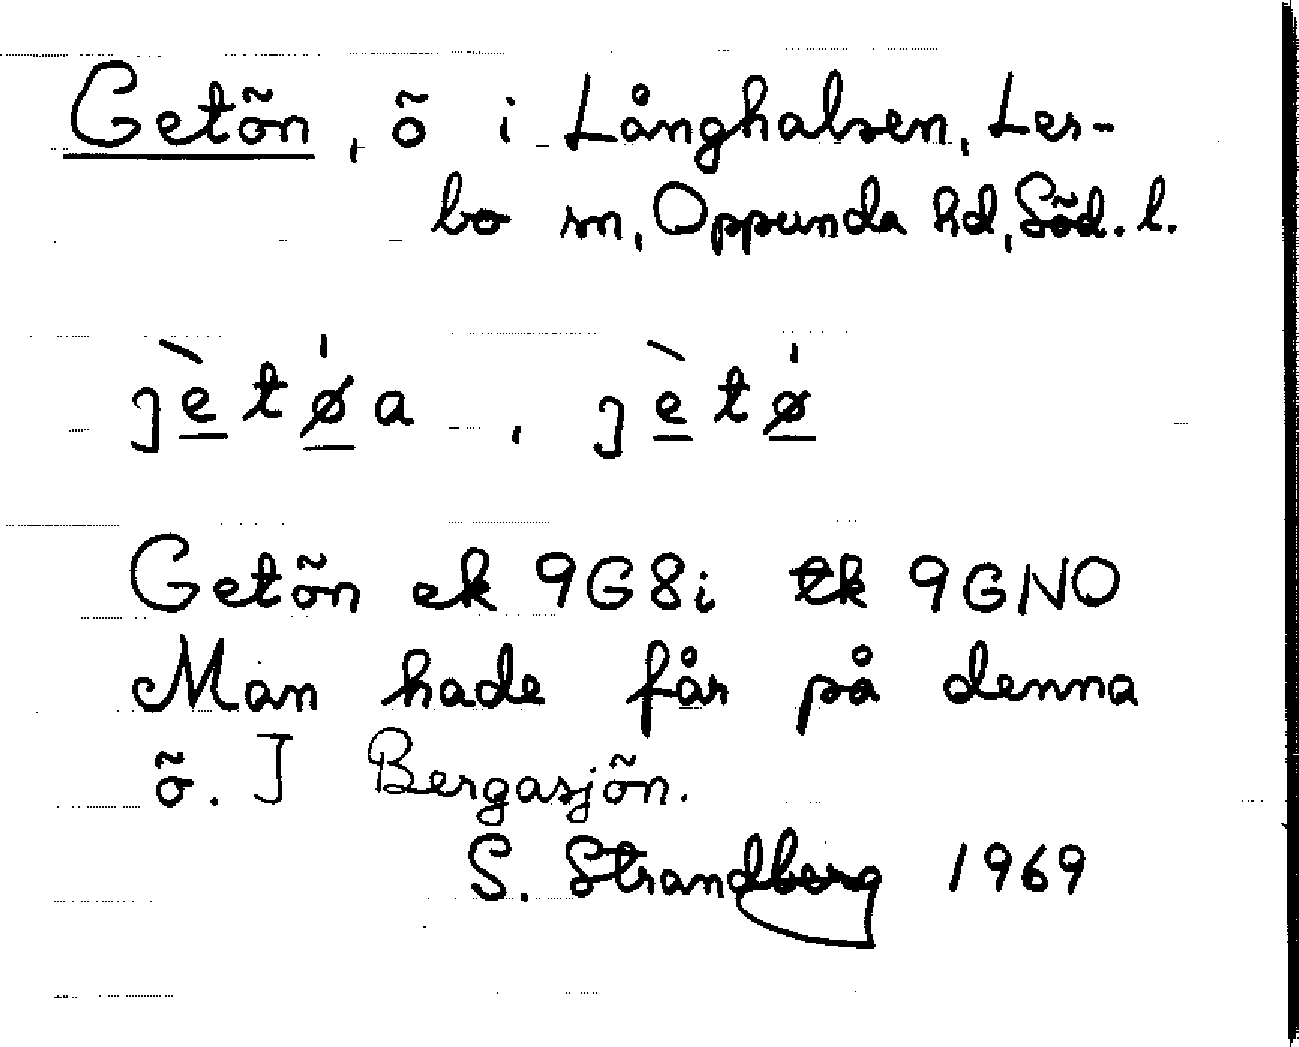 Getön, ö i Långhalsen, Les-
bo sn, Oppunda hd, Söd. l.
jè̲tǿ̲a, jè̲tǿ̲
Getön ek 9G8i 9GNO
Man hade får på denna
ö. I Bergasjön.
S. Strandberg 1969